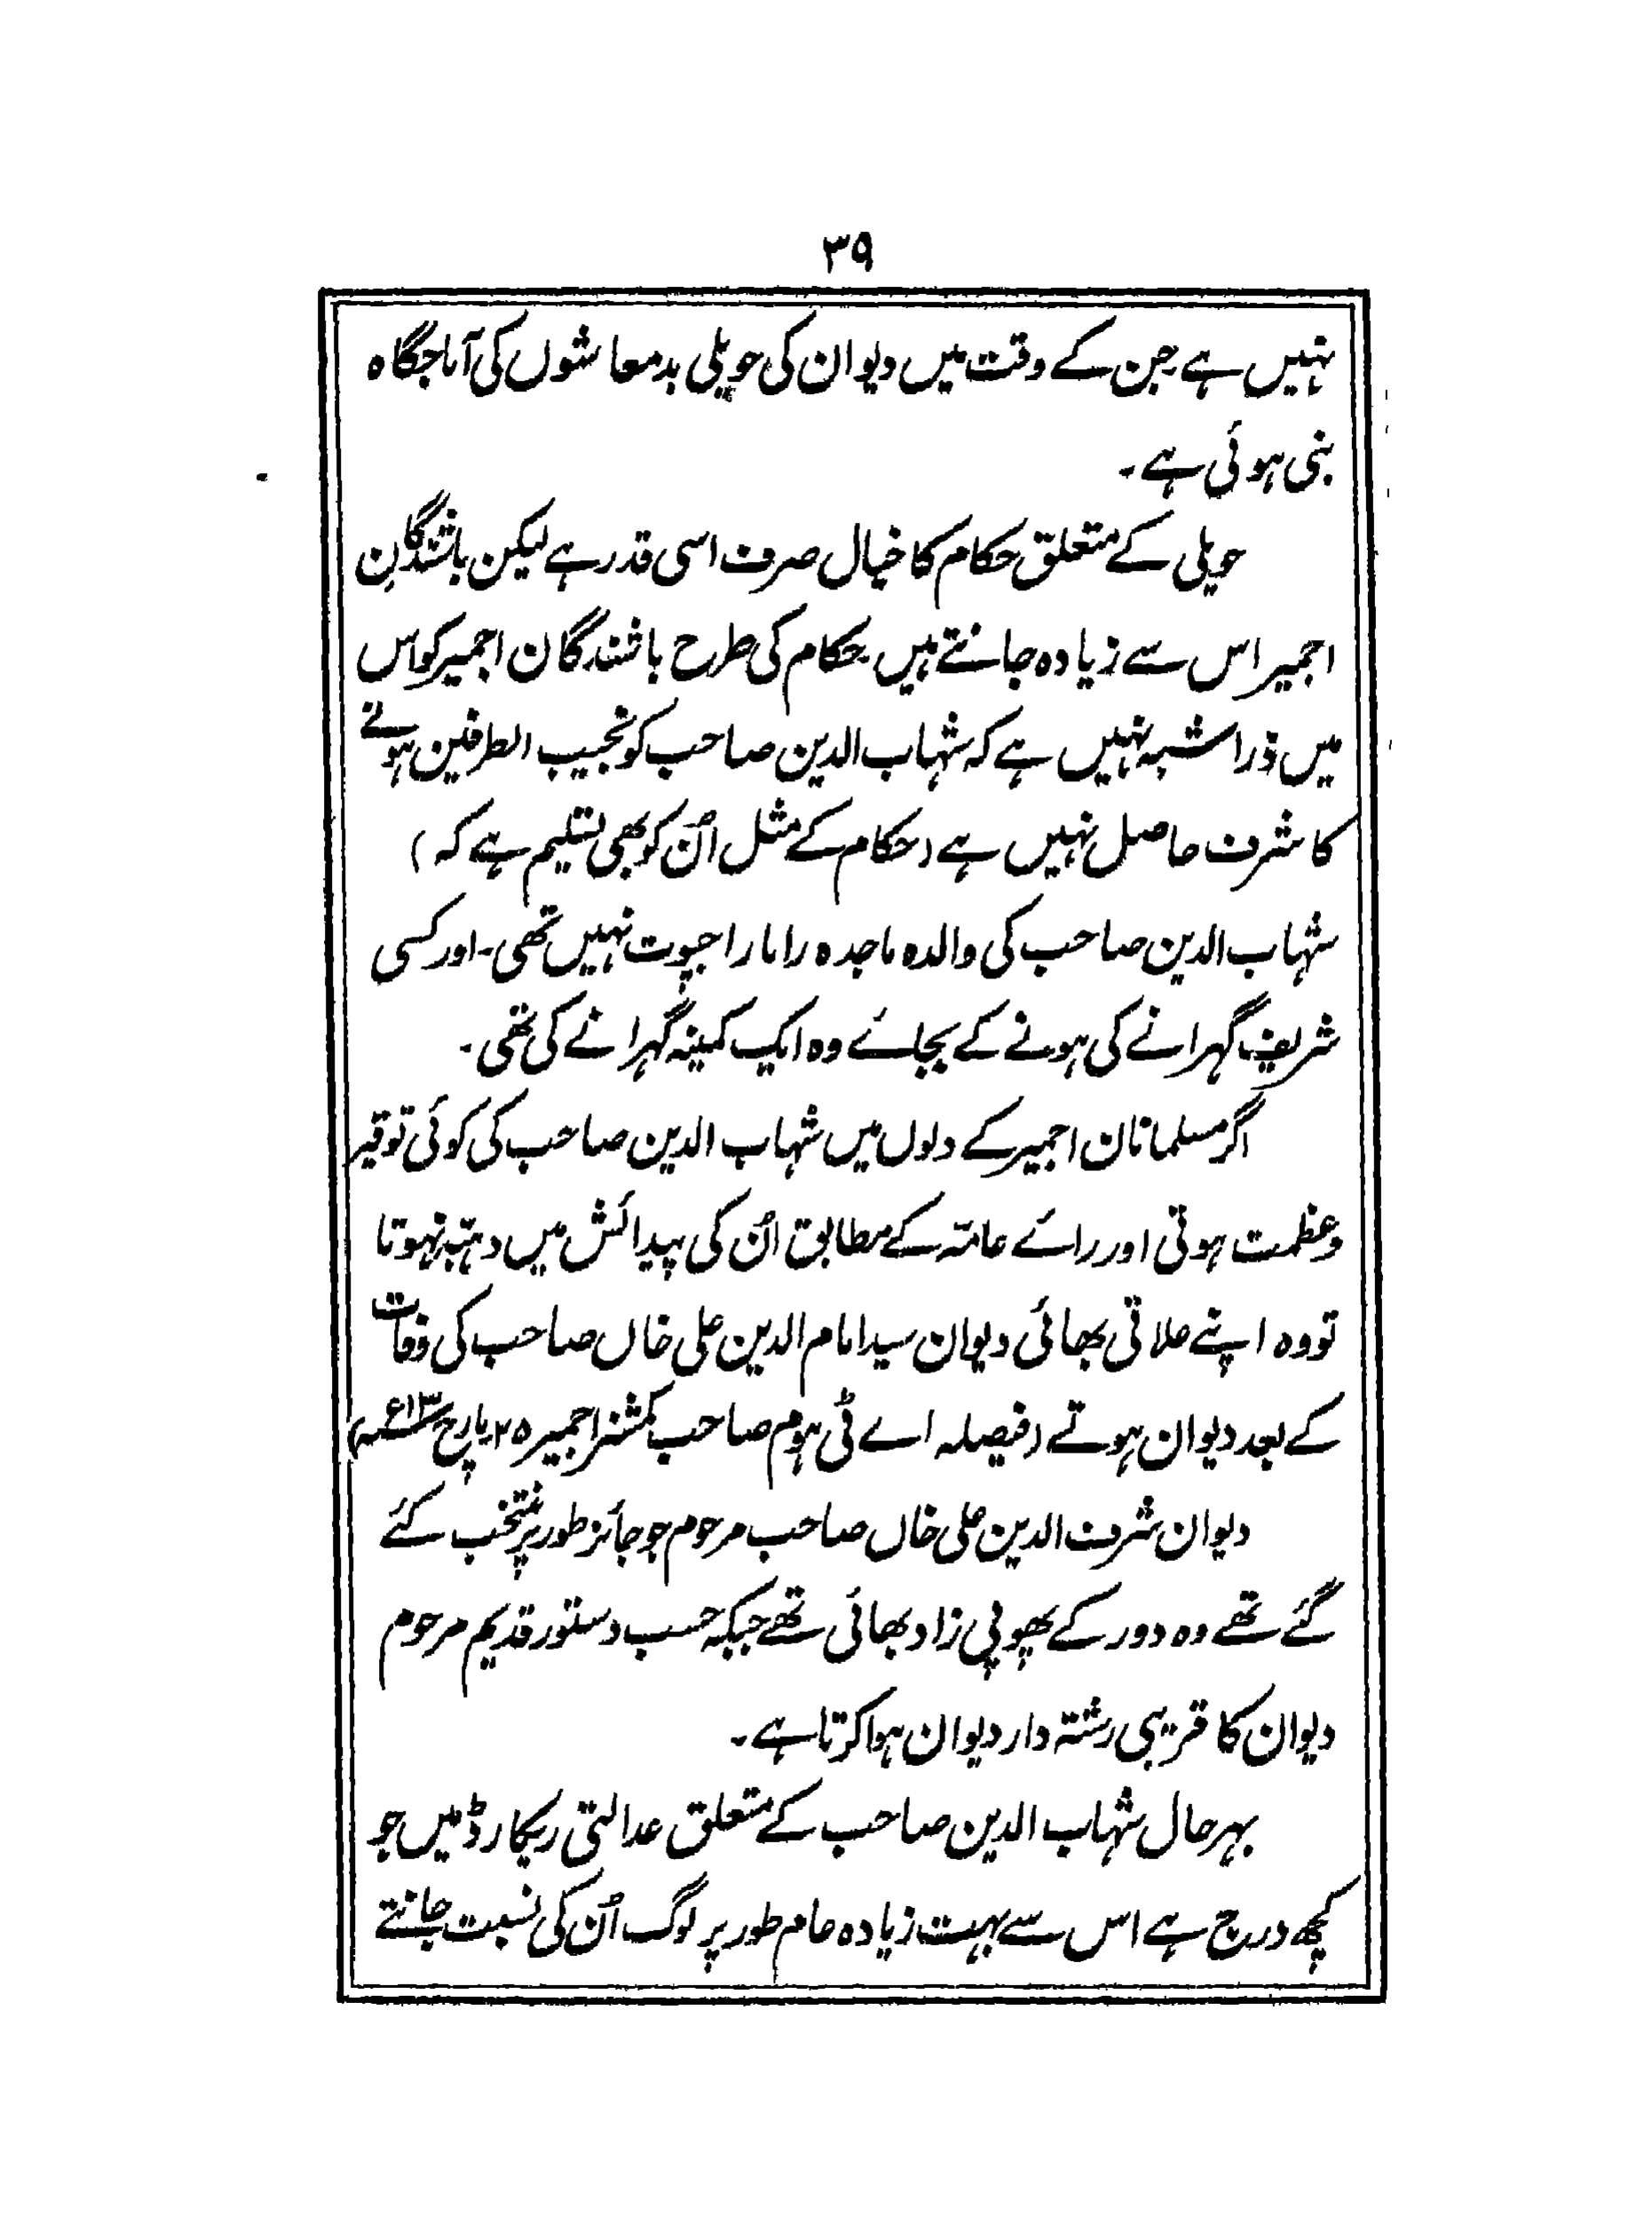 ۳۹
نہیں ہے جن کے وقت میں دیوان کی حویلی بدمعاشوں کی آماجگاہ
بنی ہوئی ہے۔
حویلی کے متعلق حکام کا خیال صرف اسی قدر ہے لیکن باشندگانِ
اجمیر اس سے زیادہ جانتے ہیں حکام کی طرح باشندگان اجمیر کو اس
میں ذرا شبہ نہیں ہے کہ شہاب الدین صاحب کو نجیب الطرفین ہونے
کا شرف حاصل نہیں ہے (حکام کے مثل اُن کو بھی تسلیم ہے کہ)
شہاب الدین صاحب کی والدہ ماجدہ رانا راجپوت نہیں تھی۔ اور کسی
شریف گہرانے کی ہونے کے بجائے وہ ایک کمینہ گہرانے کی تھی۔
اگر مسلمانان اجمیر کے دلوں میں شہاب الدین صاحب کی کوئی توقیر
و عظمت ہوتی اور رائے عامّہ کے مطابق اُن کی پیدائش میں دہبّہ نہوتا
تو وہ اپنے علاتی بھائی دیوان سید امام الدین علی خاں صاحب کی وفات
کے بعد دیوان ہوتے (فیصلہ اے ٹی ہوم صاحب کمشنر اجمیر ۲۵ مارچ ۱۳ء)
دیوان شرف الدین علی خاں صاحب مرحوم جو جائز طور پر منتخب کئے
گئے تھے وہ دور کے پھوپی زاد بھائی تھے جبکہ حسب دستور قدیم مرحوم
دیوان کا قریبی رشتہ دار دیوان ہوا کرتا ہے۔
بہرحال شہاب الدین صاحب کے متعلق عدالتی ریکارڈ میں جو
کچھ درج ہے اس سے بہت زیادہ عام طور پر لوگ اُن کی نسبت جانتے